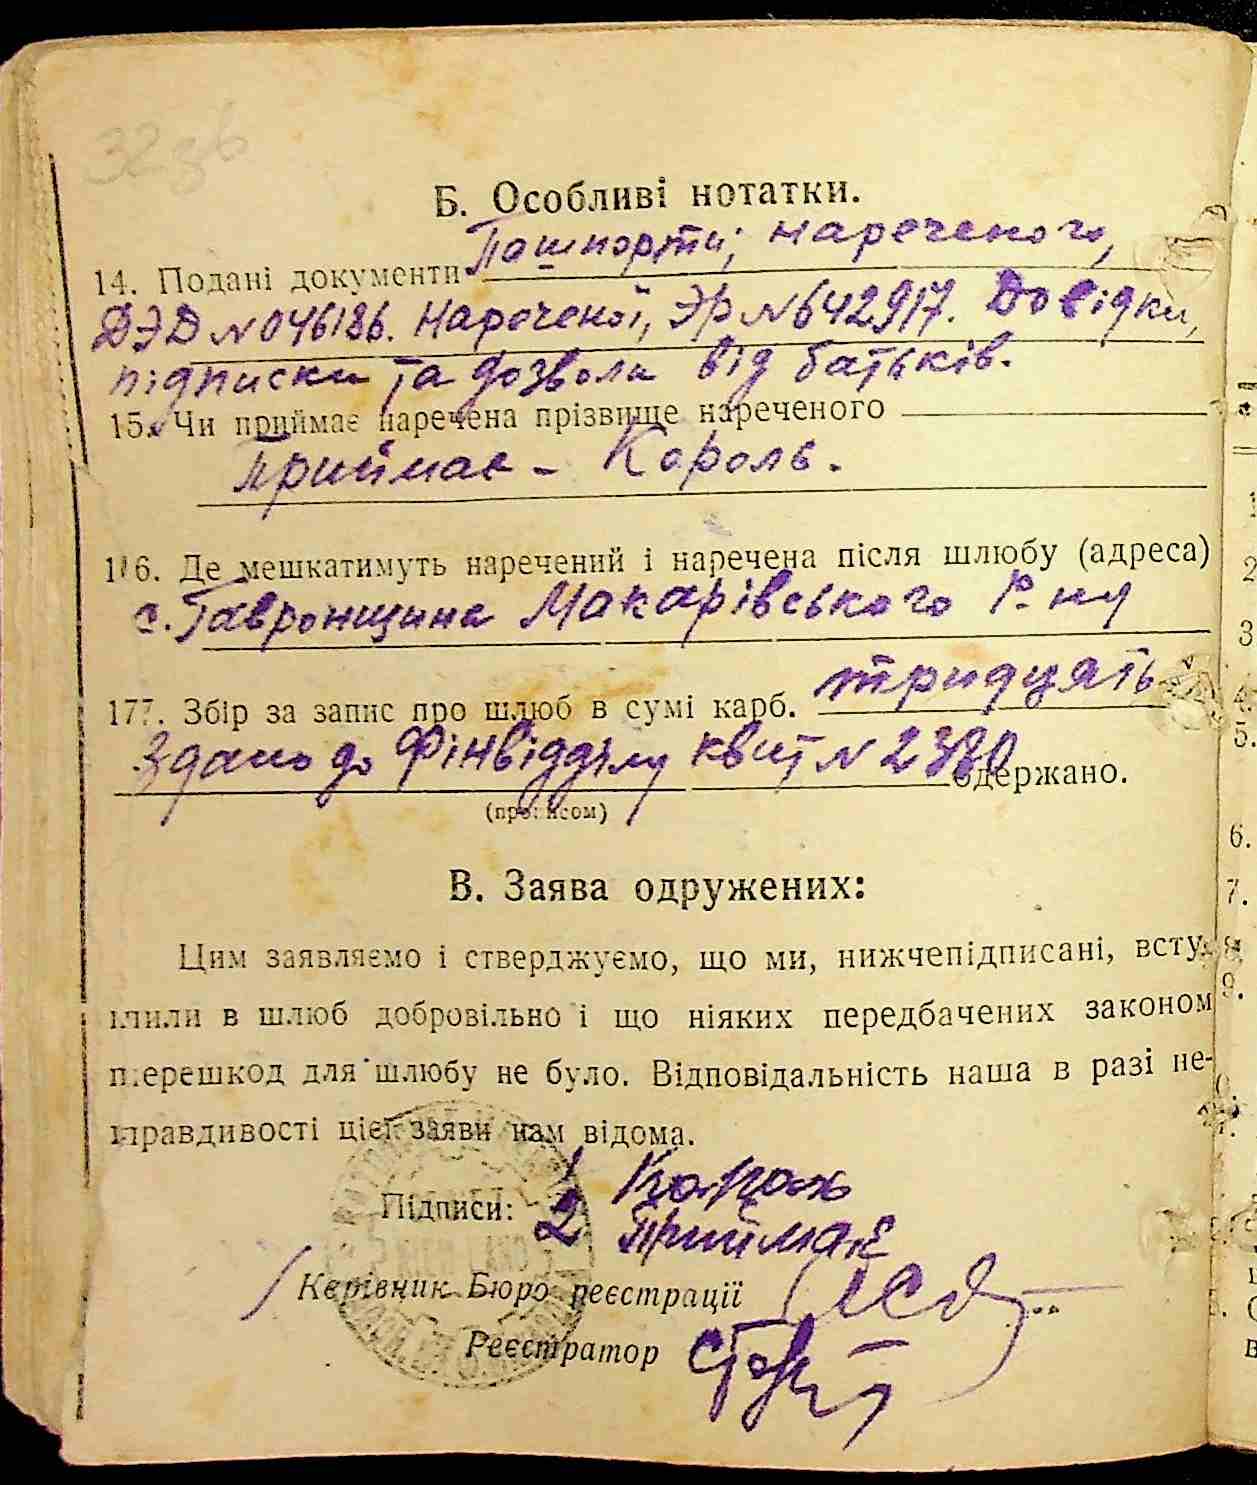 32 зв
Б. Особливі нотатки.
14. Подані документи Пашпорти; нареченого,
ДЭД № 046186. Нареченої, ЭР № 642917. Довідки,
підписки та дозволи від батьків.
15. Чи приймає наречена прізвище нареченого
Приймає - Король.
16. Де мешкатимуть наречений і наречена після шлюбу (адреса)
с. Гавронщина Макарівського Р-ну
17. Збір за запис про шлюб в сумі карб. тридцять
Здано до Фінвідділу квит № 2380 одержано.
(прописом)
В. Заява одружених:
Цим заявляємо і стверджуємо, що ми, нижчепідписані, всту-
пили в шлюб добровільно і що ніяких передбачених законом
перешкод для шлюбу не було. Відповідальність наша в разі не-
правдивості цієї заяви нам відома.
Підписи: 1 Король
2 Приймає
Керівник Бюро реєстрації
Реєстратор